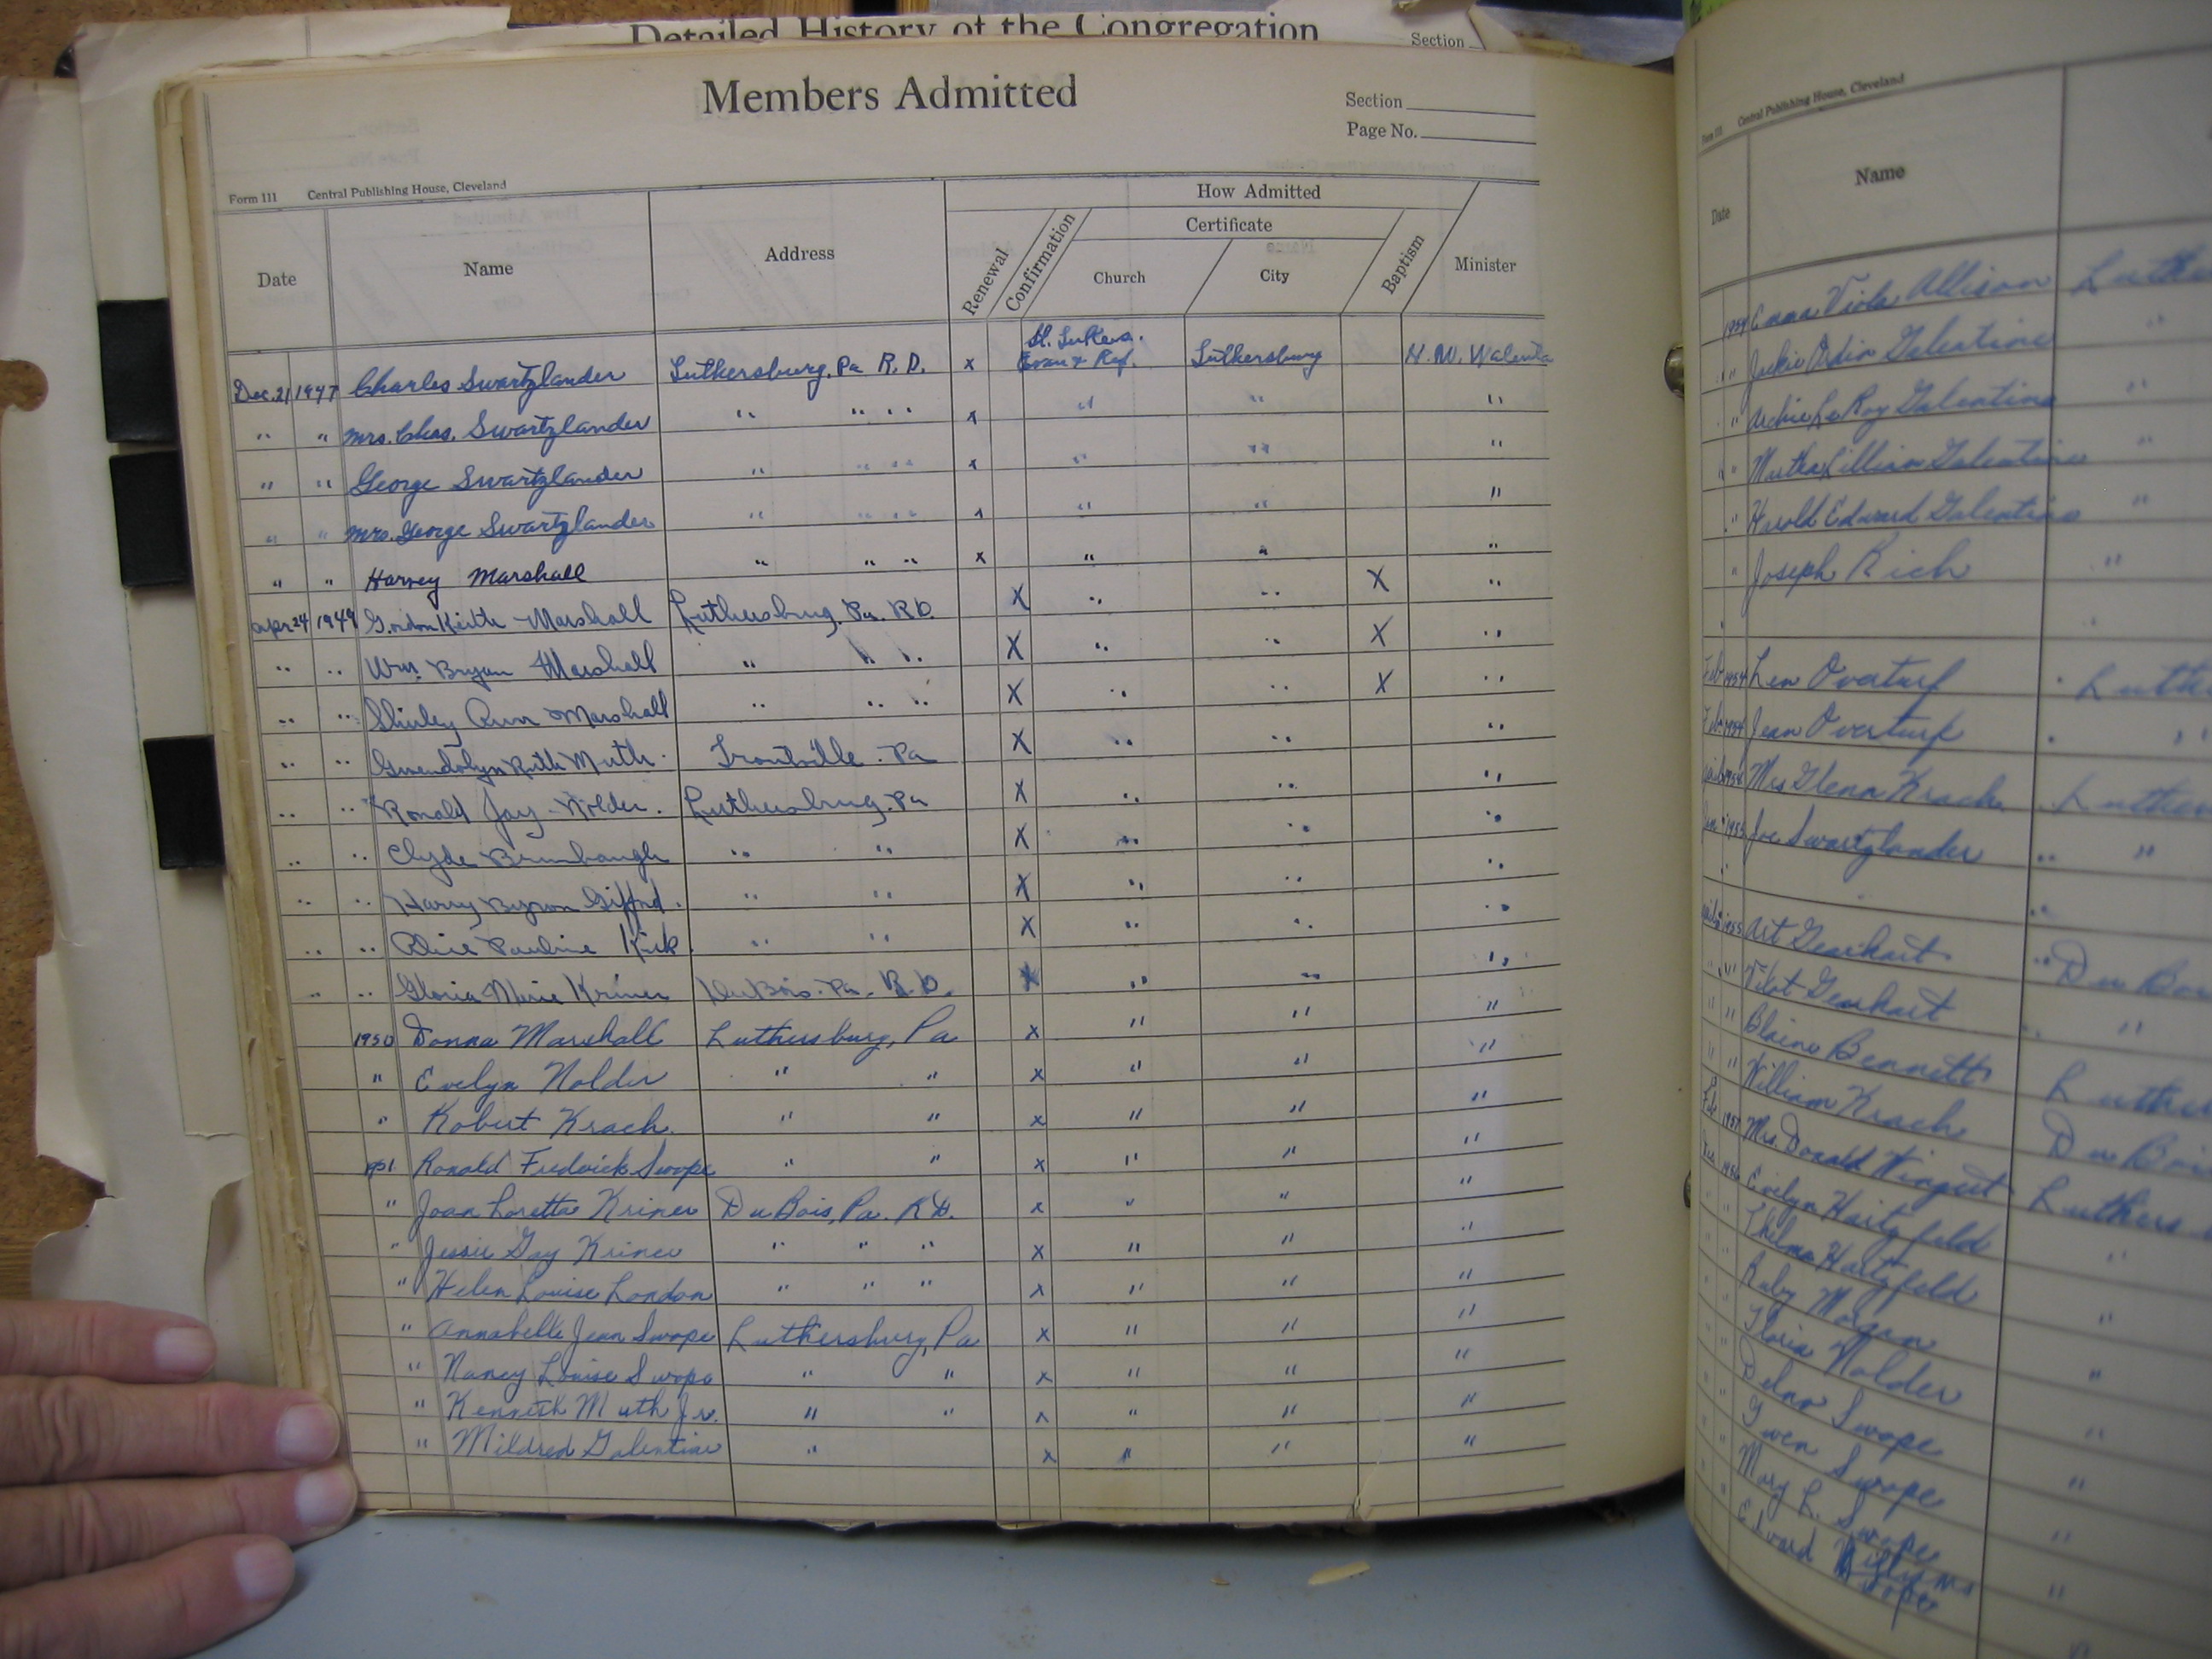 Detailed History of the Congregation
Section
Members Admitted
Section
Page No.
Form 111 Central Publishing House, Cleveland
Date Name Address Renewal Confirmation How Admitted Certificate Church City Baptism Minister
Dec. 21 1947 Charles Swartzlander Luthersburg, Pa R. D. x St. Lukes. Evan & Ref. Luthersburg H. W. Walenta
" " Mrs. Chas. Swartzlander " " " x " " "
" " George Swartzlander " " " x " " "
" " Mrs. George Swartzlander " " " x " " "
" " Harvey Marshall " " " x " " "
Apr 24 1949 Gordon Keith Marshall Luthersburg. Pa. R.D. X " " X "
" " Wm. Bryan Marshall " " " X " " X "
" " Shirley Ann Marshall " " " X " " X "
" " Gwendolyn Ruth Muth. Troutville. Pa X " " "
" " Ronald Jay Nolder. Luthersburg. Pa X " " "
" " Clyde Brumbaugh " " X " " "
" " Harry Byron Gifford. " " X " " "
" " Alice Pauline Kirk. " " X " " "
" " Gloria Marie Kriner DuBois. Pa. R.D. X " " "
1950 Donna Marshall Luthersburg, Pa x " " "
" Evelyn Nolder " " x " " "
" Robert Krach. " " x " " "
1951 Ronald Fredrick Swope " " x " " "
" Joan Loretta Kriner DuBois, Pa. R.D. x " " "
" Jessie Gay Kriner " " " x " " "
" Helen Louise London " " " x " " "
" Annabelle Jean Swope Luthersburg, Pa x " " "
" Nancy Louise Swope " " x " " "
" Kenneth Muth Jr. " " x " " "
" Mildred Galentine " x " " "
Form 111 Central Publishing House, Cleveland
Date Name
1954 Emma Viola Allison Luthe
" Jackie Odin Galentine "
" Archie LeRoy Galentine "
" " Lillian Galentine "
" Harold Edward Galentine "
" Joseph Rich "
Feb 1954 Len Overturf Luthe
Feb 1954 Jean Overturf "
1954 Mrs Glenn Krach Luther
1955 Joe Swartzlander " "
1955 Art Gearhart " Du Boi
" " Gearhart "
" " Blaine Bennett Luther
" " William Krach Du Boi
Feb 1957 Mrs. Donald Wingert Luthers
Evelyn Hartzfeld "
" Thelma Hartzfeld "
" Ruby Morgan "
" Gloria Nolder "
" Delno Swope "
" Gwen Swope "
" Mary L. Swope "
" Edward Swope